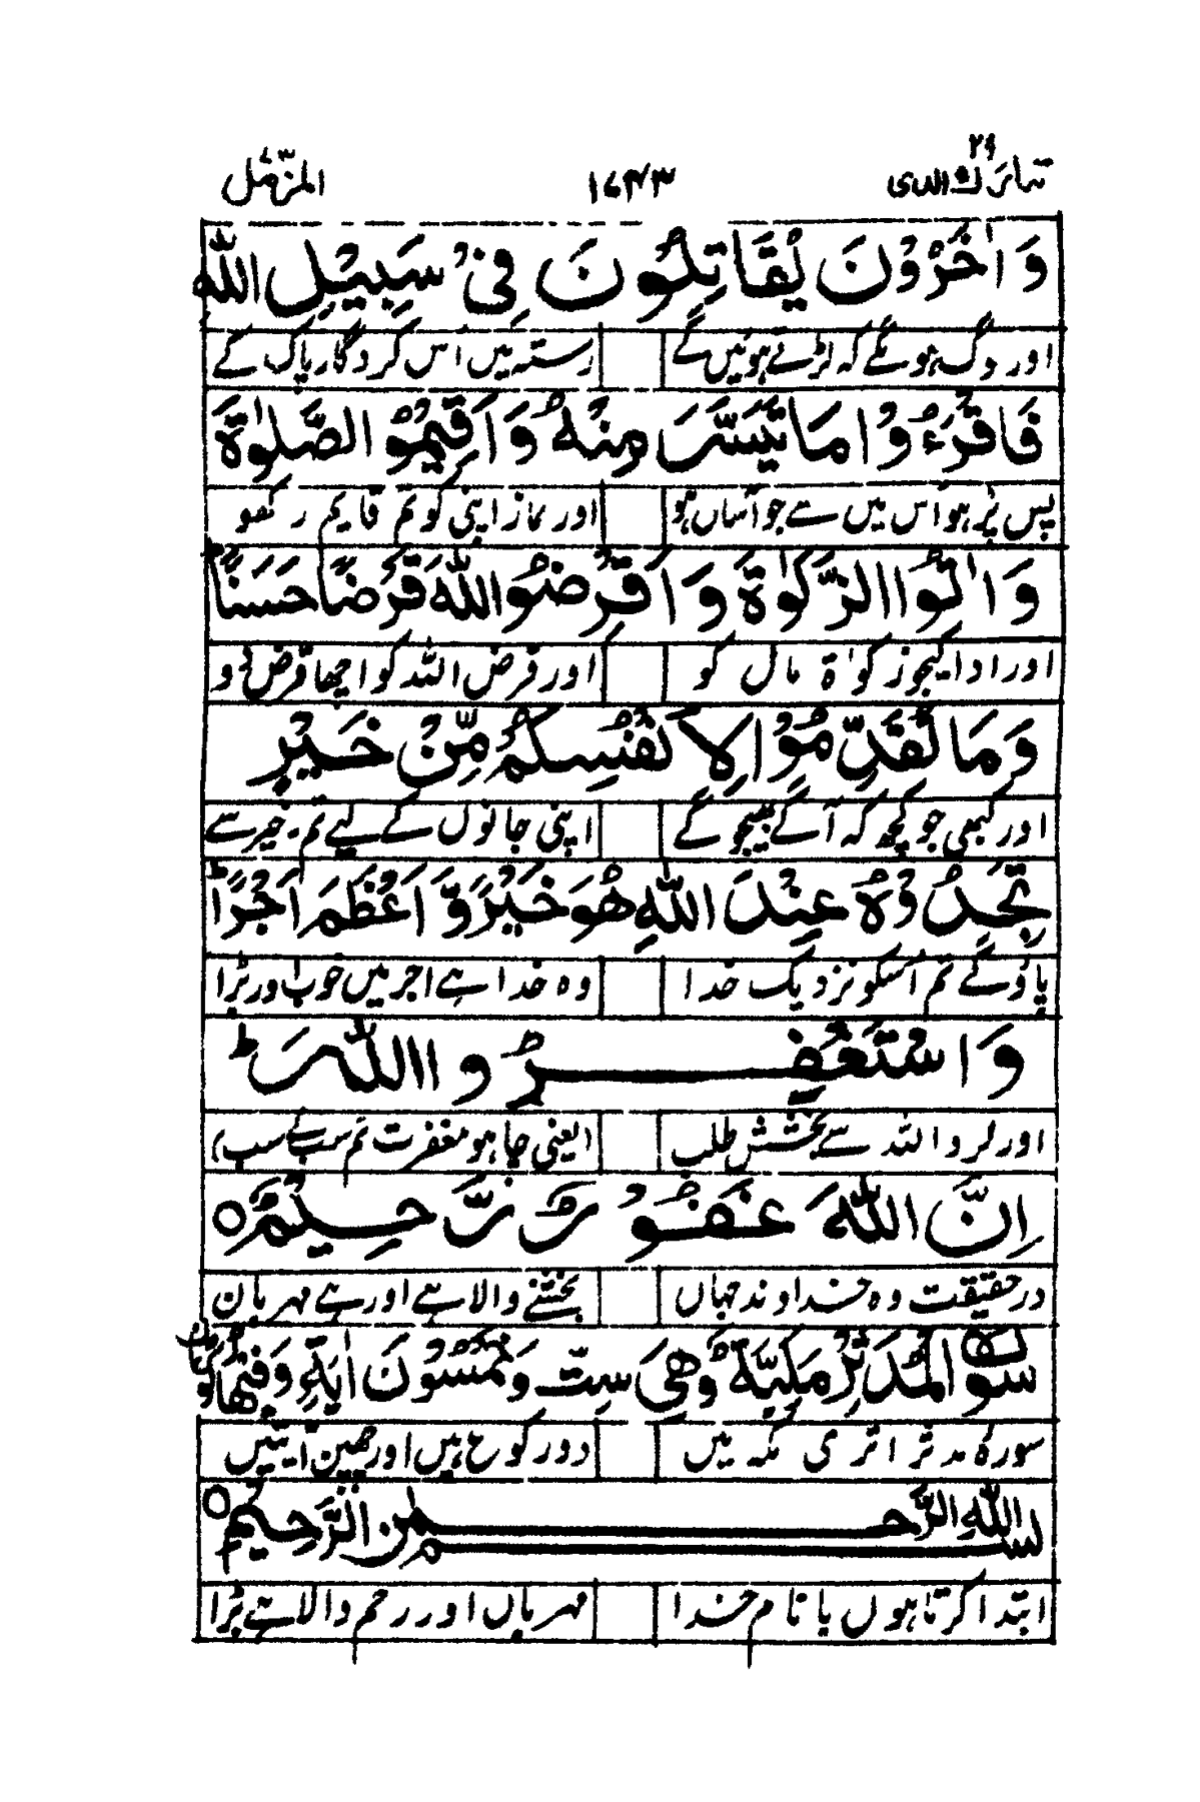 تبارك الذی ۲۹ ۱۷۴۳ المزّمّل ۷۳
وَاٰخَرُوْنَ يُقَاتِلُوْنَ فِىْ سَبِيْلِ اللّٰهِ
اور لوگ ہونگے کہ لڑتے ہوئیں گے رستہ میں اُس کردگار پاک کے
فَاقْرَءُوْا مَا تَيَسَّرَ مِنْهُ وَاَقِيْمُوا الصَّلٰوةَ
پس پڑہو اس میں سے جو آساں ہو اور نماز اپنی کو تم قایم رکھو
وَاٰتُوا الزَّكٰوةَ وَاَقْرِضُوا اللّٰهَ قَرْضًا حَسَنًا ؕ
اور ادا کیجو زکوٰۃ مال کو اور قرض اللہ کو اچھا قرض دو
وَمَا تُقَدِّمُوْا لِاَنْفُسِكُمْ مِّنْ خَيْرٍ
اور کبھی جو کچھ کہ آگے بھیجو گے اپنی جانوں کے لیے تم خیر سے
تَجِدُوْهُ عِنْدَ اللّٰهِ هُوَ خَيْرًا وَّاَعْظَمَ اَجْرًا ؕ
پاؤ گے تم اُسکو نزدیک خدا وہ خدا ہے اجر میں خوب اور بڑا
وَاسْتَغْفِرُوا اللّٰهَ ؕ
اور کرو اللہ سے بخشش طلب (یعنی چاہو مغفرت تم سب)
اِنَّ اللّٰهَ غَفُوْرٌ رَّحِيْمٌ ○
درحقیقت وہ خداوند جہاں بخشنے والا ہے اور ہے مہربان
سُوْرَةُ الْمُدَّثِّرِ مَكِّيَّةٌ وَّهِىَ سِتٌّ وَّخَمْسُوْنَ اٰيَةً وَّفِيْهَا رُكُوْعَانِ
سورۂ مدثر اتری مکہ میں دو رکوع ہیں اور چھپن آیتیں
بِسْمِ اللّٰهِ الرَّحْمٰنِ الرَّحِيْمِ ○
ابتدا کرتا ہوں با نام خدا مہرباں اور رحم والا ہے بڑا